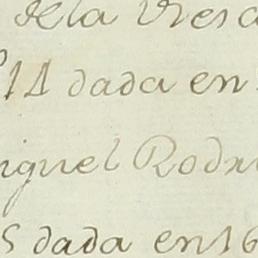 dela Vesca
11 dada en
iguel Rodri
5 dada en 16